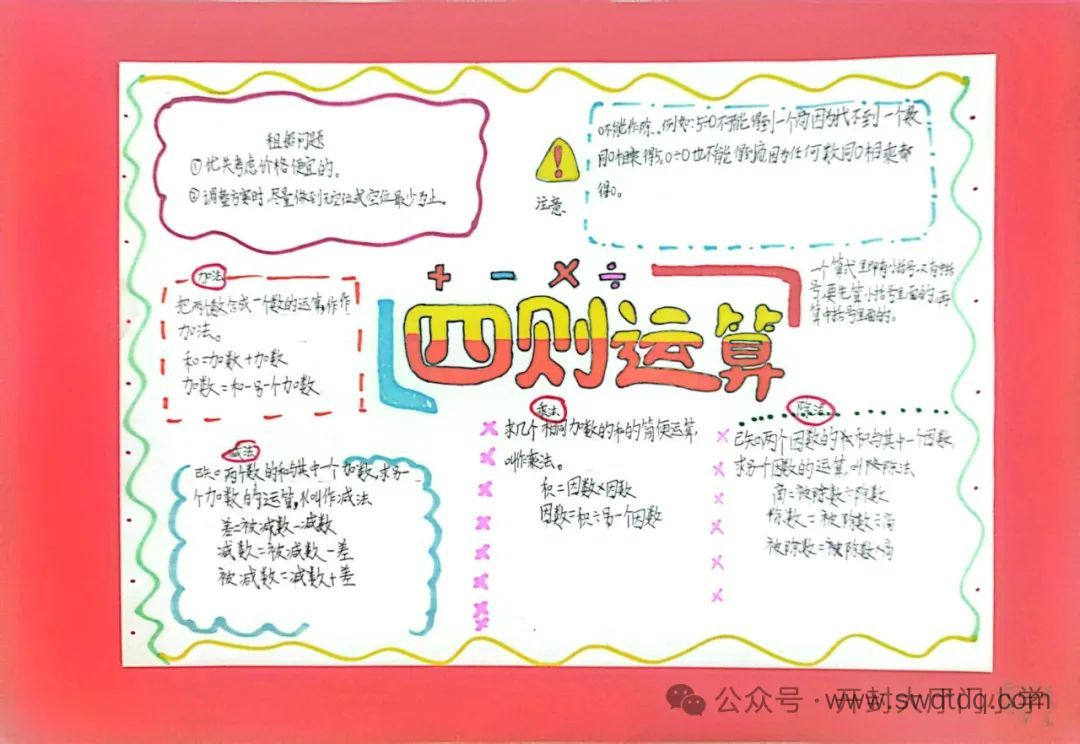 租船问题
①优先考虑价格便宜的。
②调整方案时,尽量做到无空位或空位最少为止。
注意
0不能作除。例如:5÷0不能得到一个商因为找不到一个数
同0相乘得5,0÷0也不能得到应因为任何数同0相乘都
得0。
+ - × ÷
四则运算
一个算式里即有小括号,又有中括
号,要先算小括号里面的,再
算中括号里面的。
加法
把两个数合成一个数的运算,作作
加法。
和=加数+加数
加数=和-另一个加数
减法
已知两个数的和与其中一个加数,求另一
个加数的运算,叫作减法
差=被减数-减数
减数=被减数-差
被减数=减数+差
乘法
求几个相同加数的和的简便运算,
叫作乘法。
积=因数×因数
因数=积÷另一个因数
除法
已知两个因数的积与其中一个因数,
求另个因数的运算,叫除法
商=被除数÷除数
除数=被除数÷商
被除数=被除数×商
公众号·开封大厅门小学
www.swdtdq.com